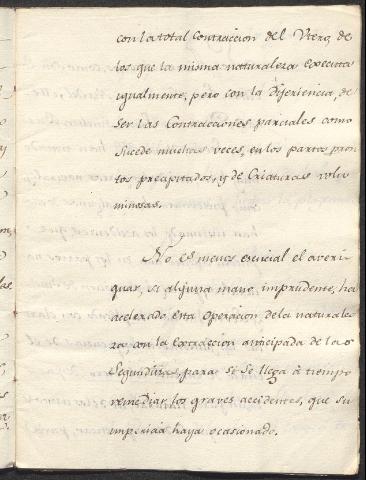 con la total contraccion del Utero, de
los que la misma naturaleza execcuta
igualmente, pero con la Diferiencia, de
ser las Contracciones parciales como
sucede muchas veces, en los partos pron
tos precipitados, y de Criaturas volu
minosas.
No es menos esencial el averi
guar, si alguna mano imprudente, ha
acelerado esta operacion de la naturale
za, con la extraccion anticipada de las
Segundinas, para si se llega à tiempo
remediar, los graves accidentes, que su
impericia haya ocasionado.